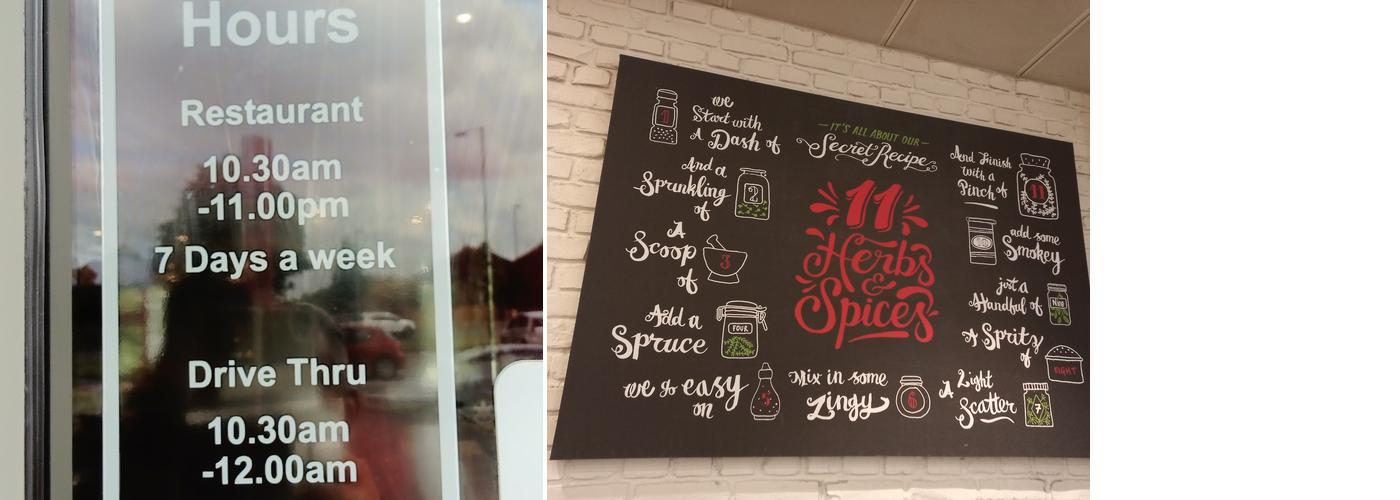 Hours
Restaurant
10.30am
-11.00pm
7 Days a week
Drive Thru
10.30am
-12.00am
IT'S ALL ABOUT OUR
Secret Recipe
11
Herbs
&
Spices
we
Start with
A Dash of
1
And a
Sprinkling
of
2
A
Scoop
of
3
Add a
Spruce
FOUR
we go easy
on
5
Mix in some
Zingy
6
A Light
Scatter
7
A Spritz
of
EIGHT
just a
Handful of
Nine
add some
Smokey
And Finish
with a
Pinch of
11